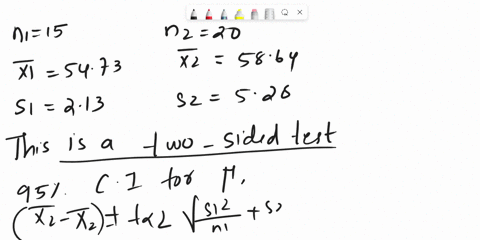 n1=15 n2=20
x̄1 = 54.73 x̄2 = 58.64
s1 = 2.13 s2 = 5.26
This is a two-sided test
95%. C.I for μ,
(x̄2-x̄2)± tα2 √s1²/n1 + s2